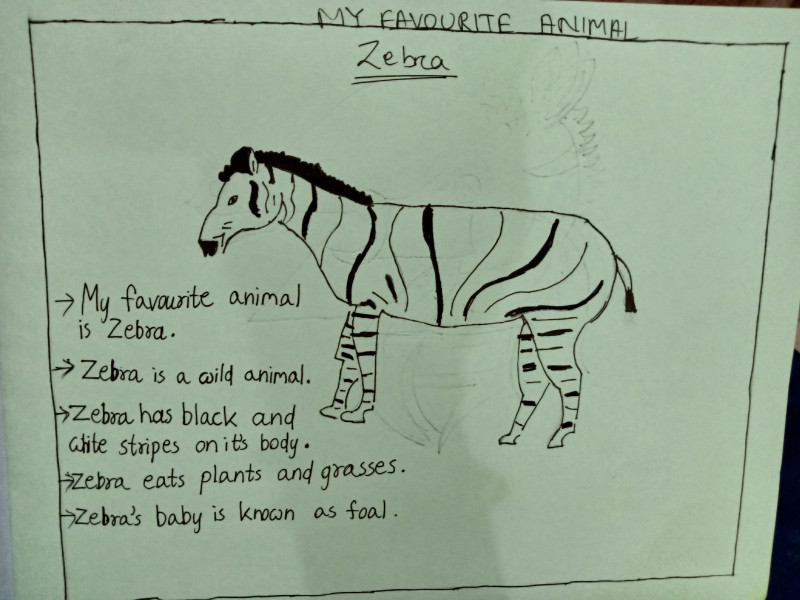 MY FAVOURITE ANIMAL
Zebra
→ My favourite animal
is Zebra.
→ Zebra is a wild animal.
→ Zebra has black and
white stripes on it's body.
→ Zebra eats plants and grasses.
→ Zebra's baby is known as foal.